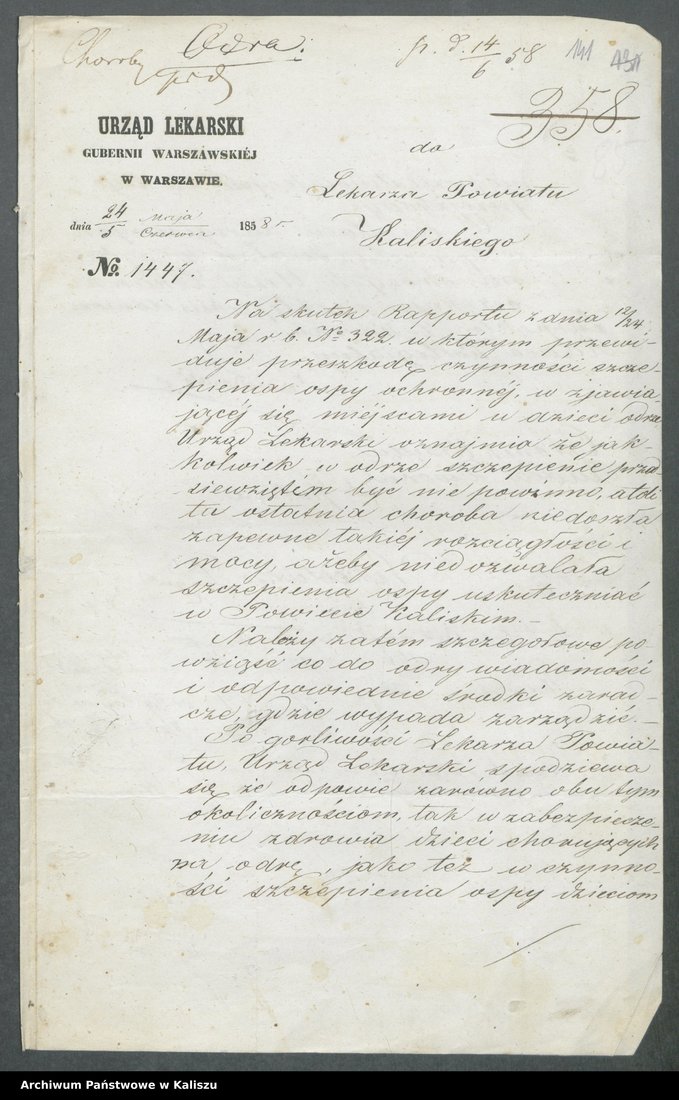 Odra.
Choroby
p. d. 14/6 58
141
358.
URZĄD LEKARSKI
GUBERNII WARSZAWSKIÉJ
W WARSZAWIE.
do
Lekarza Powiatu
Kaliskiego
dnia 24/5 Maja/Czerwca 1858 r.
No. 1447.
Na skutek Rapportu z dnia 12/24
Maja r b. No 322 w którym przewi-
duje przeszkodę czynności szcze-
pienia ospy ochronnéj, w zjawia-
jącéj się miéjscami u dzieci odra
Urząd Lekarski oznajmia że jak-
kolwiek w odrze szczepienie przed-
siewziętém być nie powinno, atoli
ta ostatnia choroba niedoszła
zapewne takiéj rozciągłości i
mocy, ażeby niedozwalała
szczepienia ospy uskuteczniać
w Powiecie Kaliskim.-
Należy zatém szczegołowe po-
wziąść co do odry wiadomości
i odpowiednie srodki zarad-
cze, gdzie wypada zarządzić.-
Po gorliwości Lekarza Powia-
tu, Urząd Lekarski spodziewa
się że odpowie zarowno obu tym
okolicznościom, tak w zabezpiecze-
niu zdrowia dzieci chorujących
na odrę, jako też w czynno-
ści szczepienia ospy dzieciom
./.
Archiwum Państwowe w Kaliszu